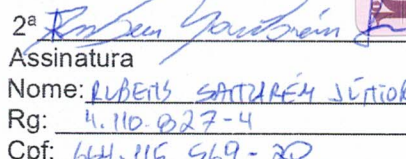 2ª
Assinatura
Nome: RUBENS SANTURÉM JÚNIOR
Rg: 4.110.827-4
Cpf: 644.115.569-20